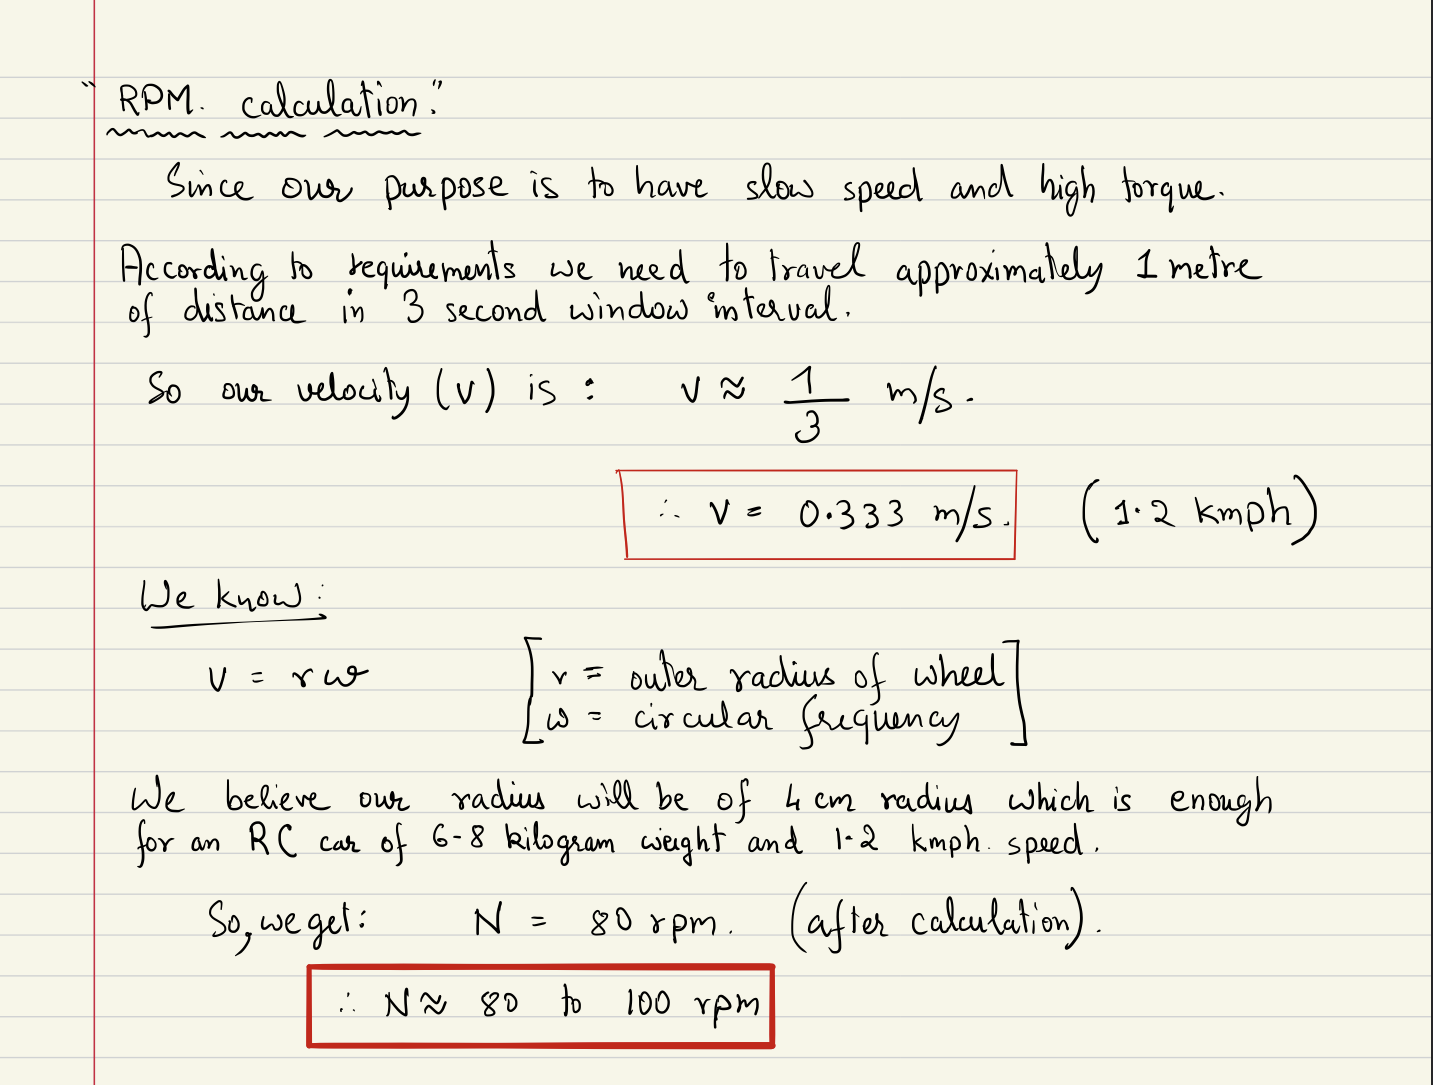 "RPM. calculation."
Since our purpose is to have slow speed and high torque.
According to requirements we need to travel approximately 1 metre
of distance in 3 second window interval.
So our velocity (v) is : v ≈ 1/3 m/s.
∴ v = 0.333 m/s. (1.2 kmph)
We know:
v = rω [r = outer radius of wheel
ω = circular frequency]
We believe our radius will be of 4 cm radius which is enough
for an RC car of 6-8 kilogram weight and 1.2 kmph. speed.
So, we get: N = 80 rpm. (after calculation).
∴ N ≈ 80 to 100 rpm